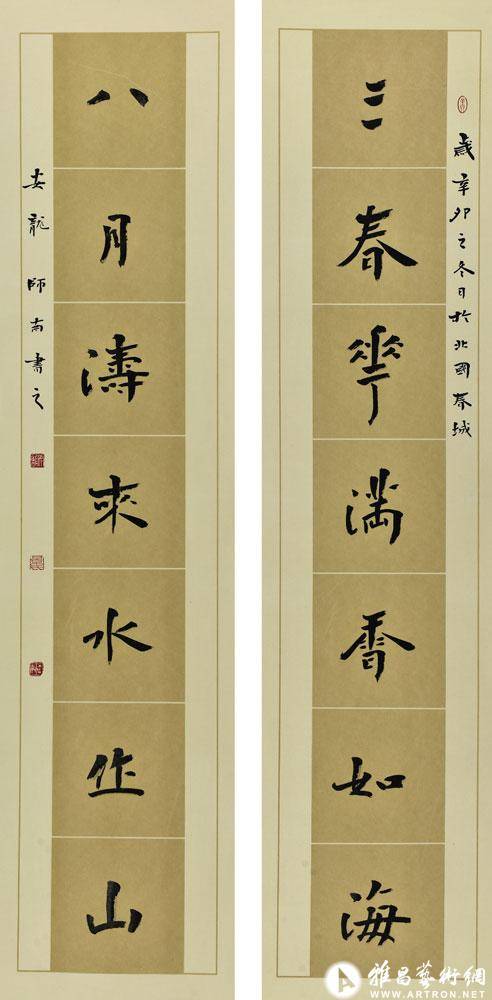 歲辛卯之冬日於北國春城
三春華滿香如海
八月濤來水作山
安龍師南書之
雅昌藝術網
WWW.ARTRON.NET